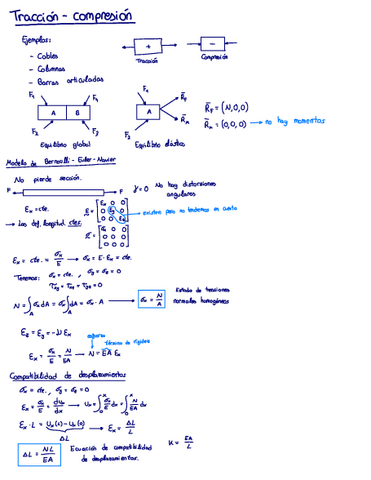 Tracción - compresión
Ejemplos:
- Cables
- Columnas
- Barras articuladas
+
Tracción
-
Compresión
F₁
A B
F₂
F₃
Equilibrio global
F₁
A
F₂
R̄_F
R̄_A
Equilibrio elástico
R̄_F = (N,0,0)
R̄_A = (0,0,0) → no hay momentos
Modelo de Bernoulli - Euler - Navier
No pierde sección.
F F
γ = 0 No hay distorsiones angulares
εx = cte.
→ Las def. longitud. ctes.
εx 0 0
0 εy 0
0 0 εz
existen pero no tendremos en cuenta
σx 0 0
0 0 0
0 0 0
εx = cte. = σx/E → σx = E · εx = cte.
Tenemos: σx = cte., σy = σz = 0
τxy = τxz = τyz = 0
N = ∫_A σx dA = σx ∫_A dA = σx · A → σx = N/A
Estado de tensiones
normales homogéneas
εz = εy = -ν εx
esfuerzo
término de rigidez
εx = σx/E = N/EA → N = EA εx
Compatibilidad de desplazamientos
σx = cte., σy = σz = 0
εx = σx/E = du_x/dx → u_x = ∫₀ˣ σx/E dx = ∫₀ˣ N/EA dx
εx · L = u_x(L) - u_x(0) → εx = ΔL/L
ΔL
ΔL = NL/EA
Ecuación de compatibilidad
de desplazamientos.
K = EA/L